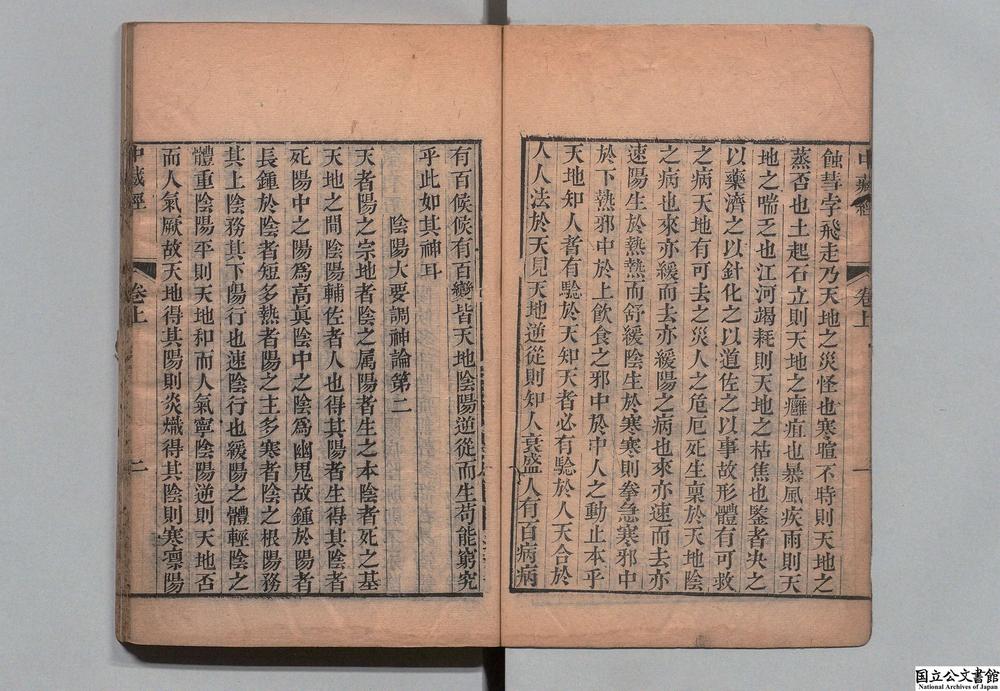 中藏經 卷上 一
蝕彗孛飛走乃天地之災怪也寒暄不時則天地之
蒸否也土起石立則天地之癰疽也暴風疾雨則天
地之喘乏也江河竭耗則天地之枯焦也鍳者決之
以藥濟之以針化之以道佐之以事故形體有可救
之病天地有可去之災人之危厄死生稟於天地陰
之病也來亦緩而去亦緩陽之病也來亦速而去亦
速陽生於熱熱而舒緩陰生於寒寒則拳急寒邪中
於下熱邪中於上飲食之邪中於中人之動止本乎
天地知人者有驗於天知天者必有驗於人天合於
人人法於天見天地逆從則知人衰盛人有百病病
有百候候有百變皆天地陰陽逆從而生苟能窮究
乎此如其神耳
陰陽大要調神論第二
天者陽之宗地者陰之属陽者生之本陰者死之基
天地之間陰陽輔佐者人也得其陽者生得其陰者
死陽中之陽爲高眞陰中之陰爲幽鬼故鍾於陽者
長鍾於陰者短多熱者陽之主多寒者陰之根陽務
其上陰務其下陽行也速陰行也緩陽之體輕陰之
體重陰陽平則天地和而人氣寧陰陽逆則天地否
而人氣厥故天地得其陽則炎熾得其陰則寒凛陽
中藏經 卷上 二
国立公文書館
National Archives of Japan